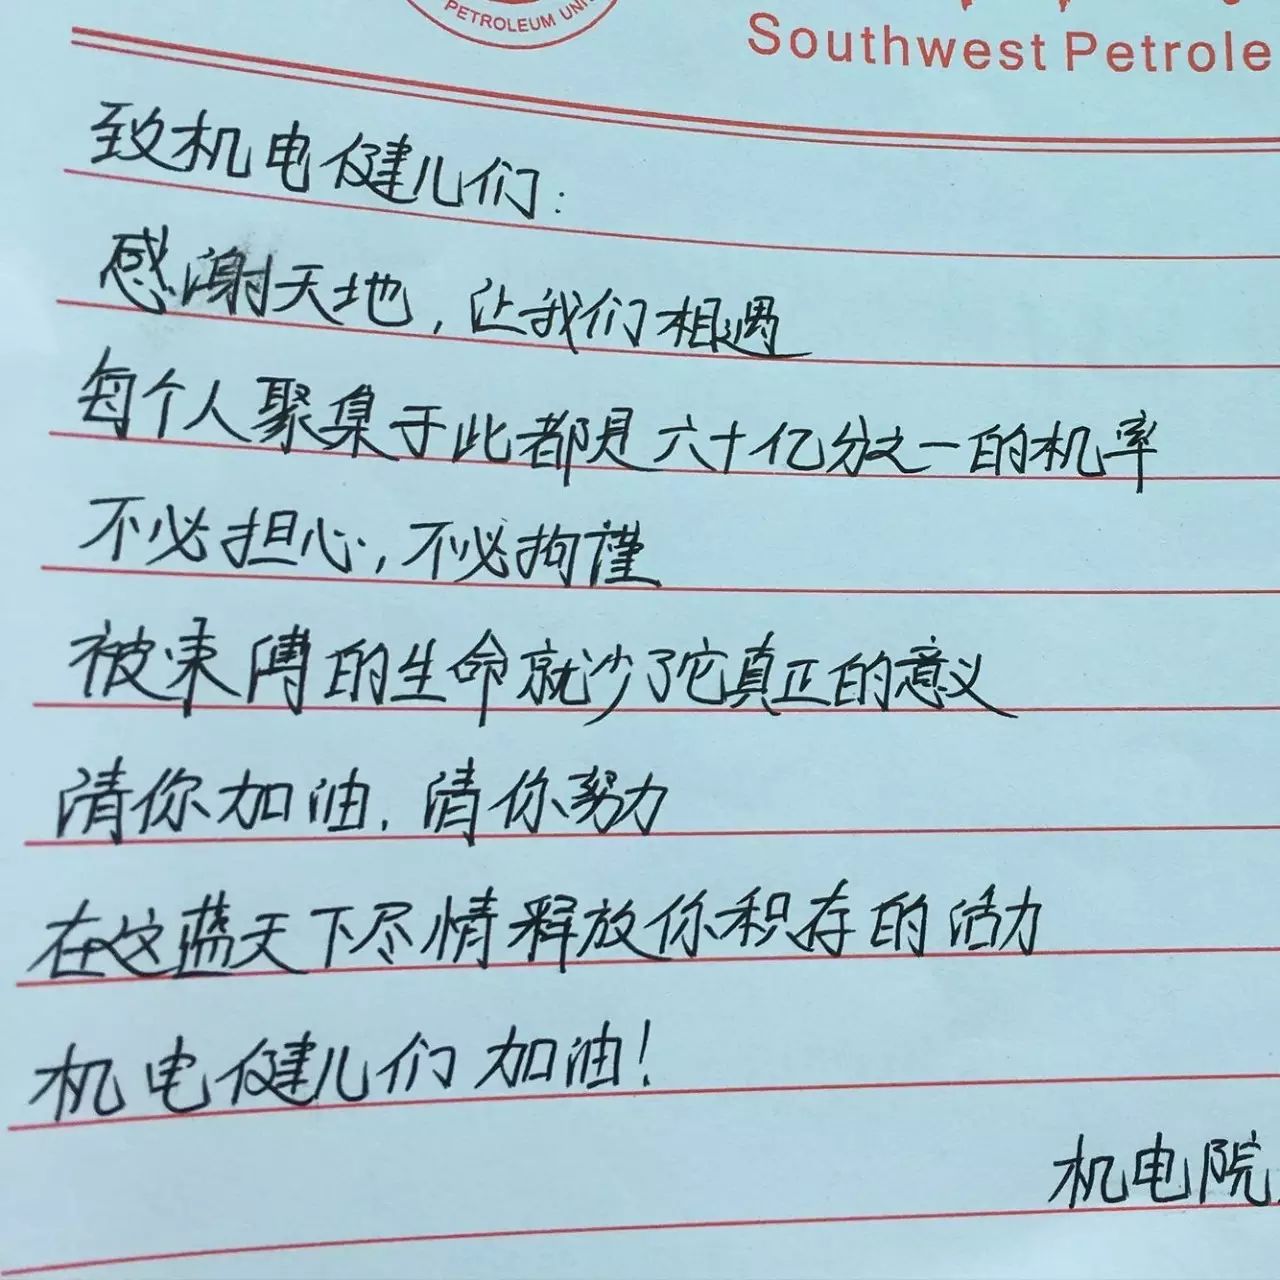 PETROLEUM UNI
Southwest Petrole
致机电健儿们：
感谢天地，让我们相遇
每个人聚集于此都是六十亿分之一的机率
不必担心，不必拘谨
被束缚的生命就少了它真正的意义
请你加油，请你努力
在这蓝天下尽情释放你积存的活力
机电健儿们加油！
机电院